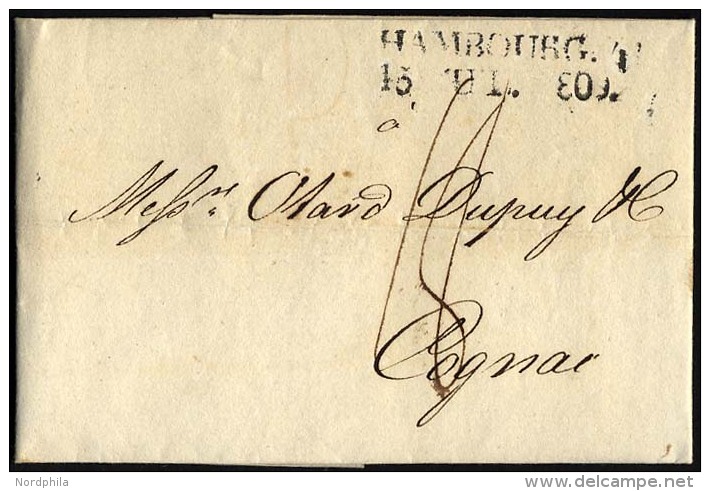 HAMBOURG. 4
15 JUIL. 809.
à
Messrs Otard Dupuy & C
18
Cognac
Nordphila
delcampe.net